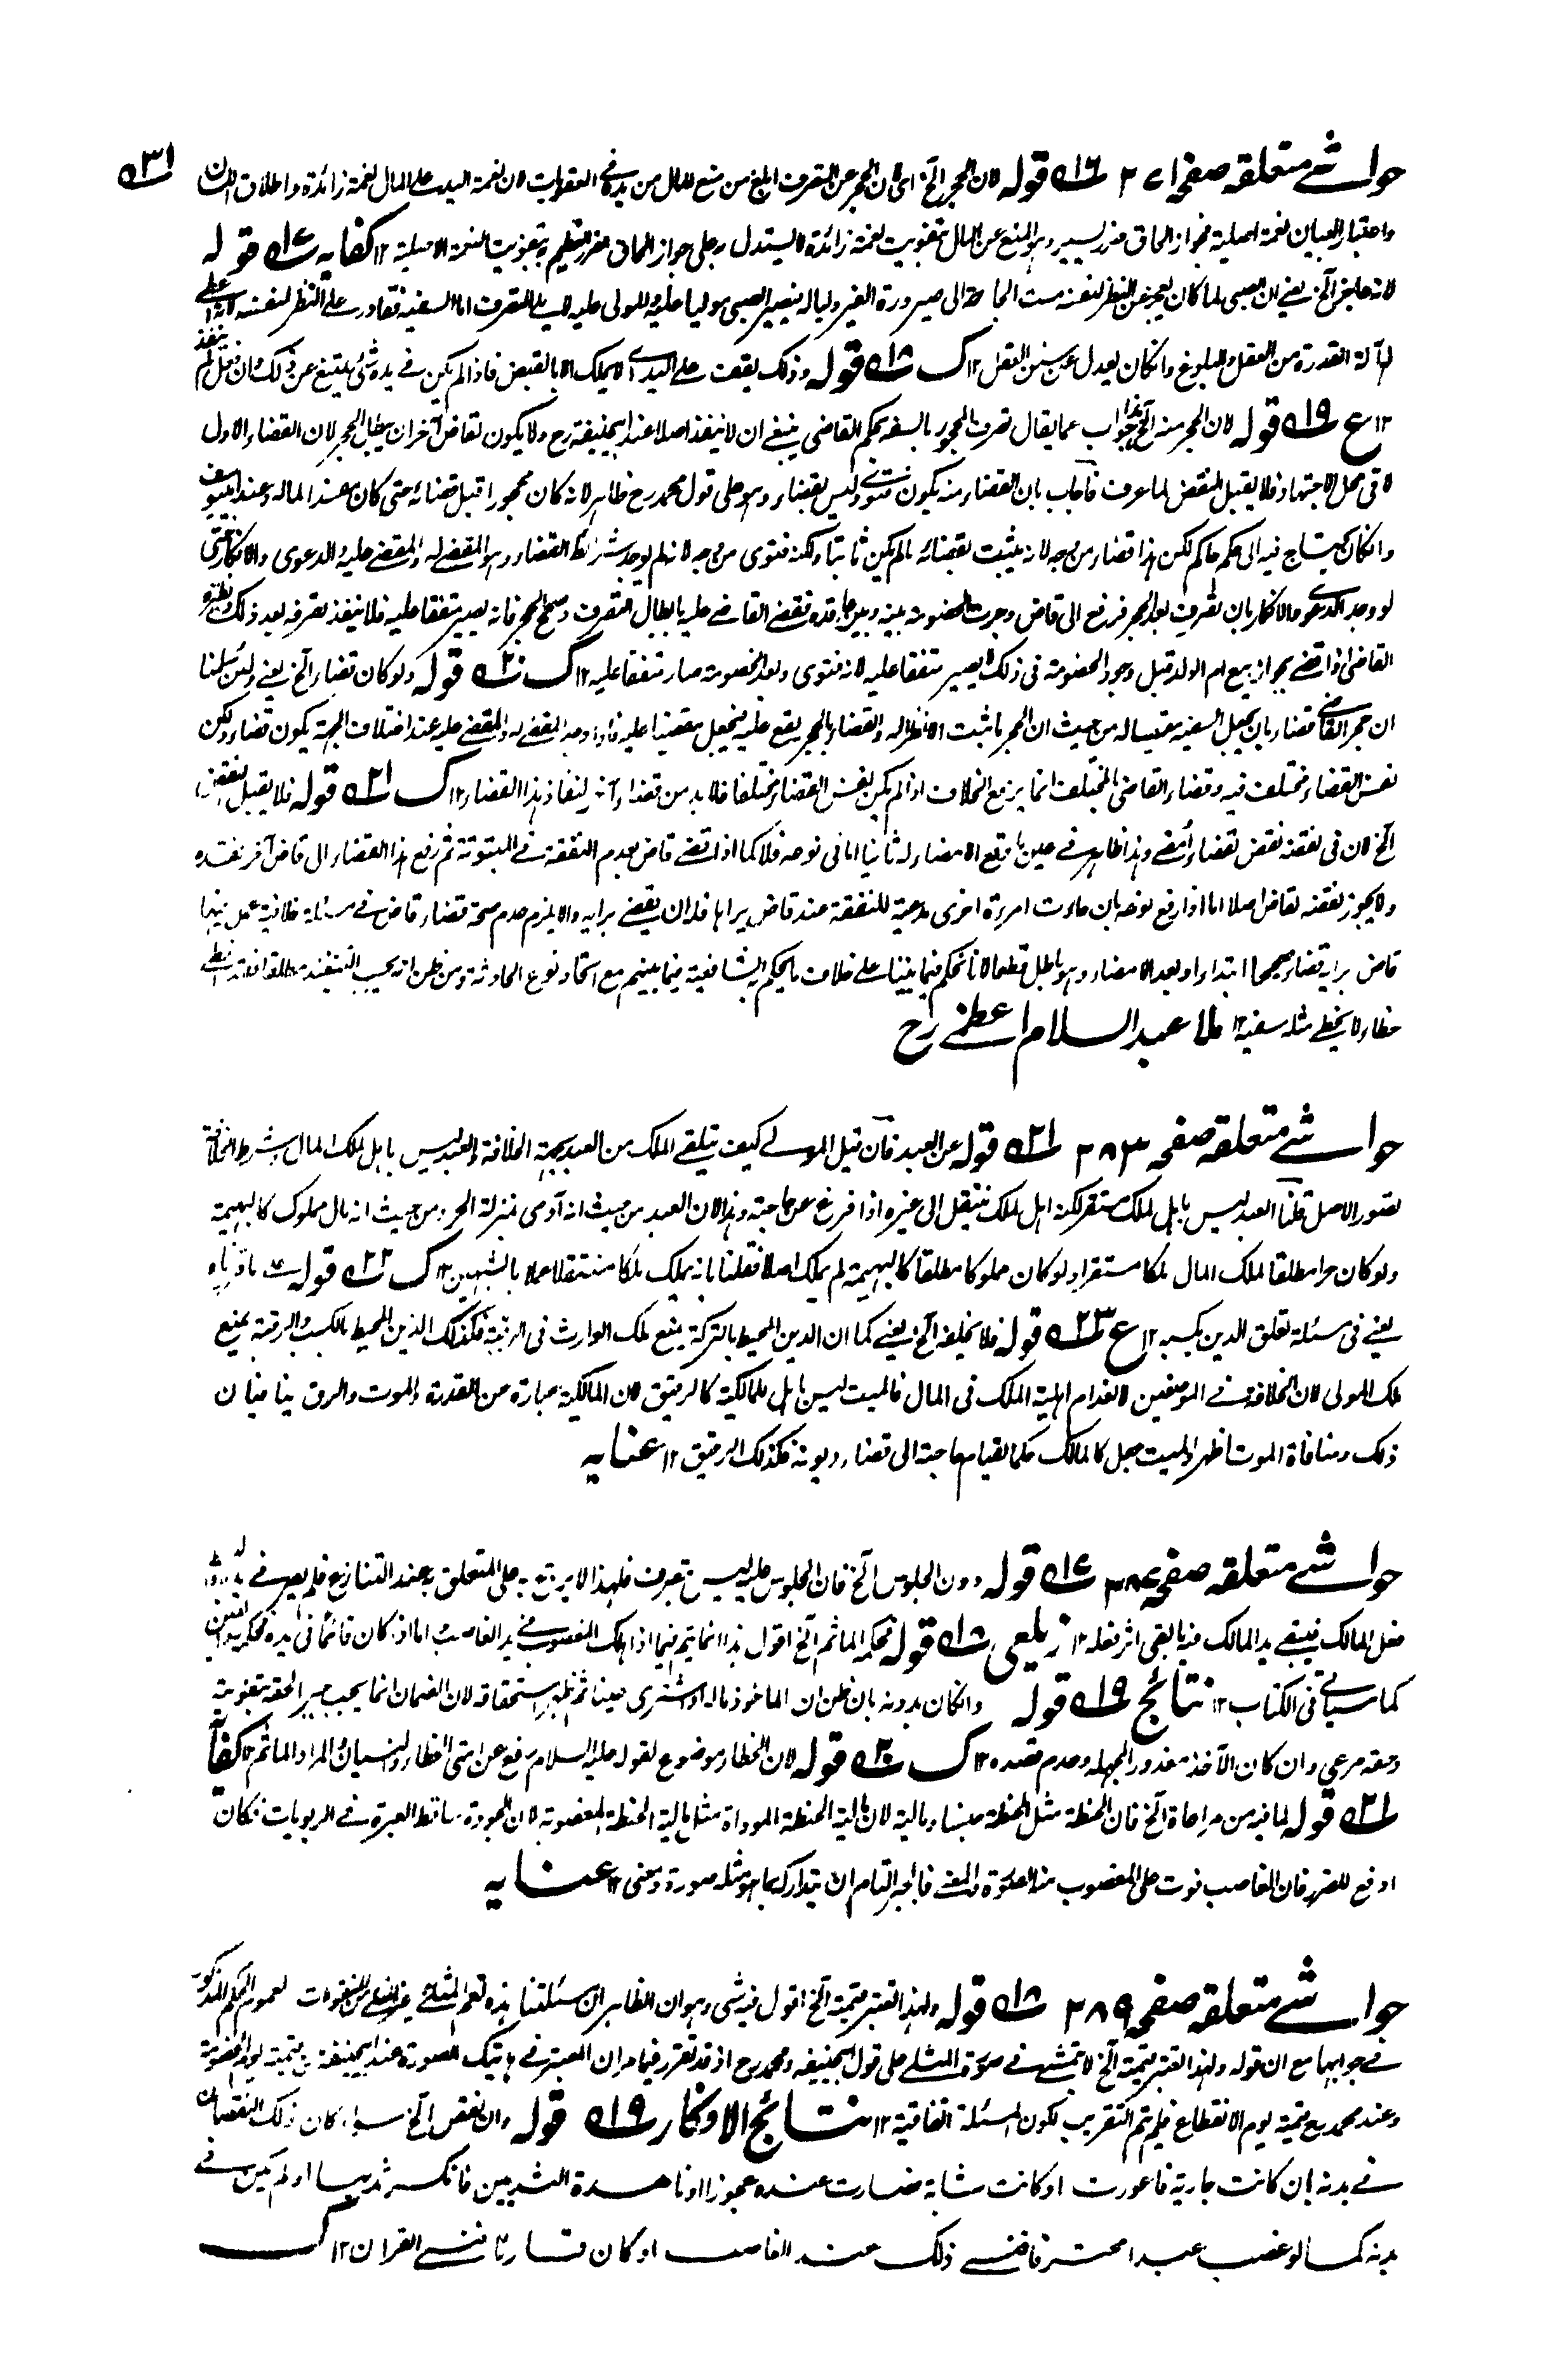 ٥٣١
حواشے متعلقہ صفحہ ٢٧١ ١٦؎ قولہ لان الحجر الخ ای لان الحجر عن التصرف ابلغ من منع المال من يده فے العقوبات لان نعمة اليد علے المال نعمة زائدة واطلاق اللسان
واعتبار البيان نعمة اصلية فجواز الحاق ضرر يسير وهو المنع عن المال بتفويت نعمة زائدة لا يستدل به على جواز الحاق ضرر عظيم بتفويت النعمة الاصلية ١٢ کفایہ ١٧؎ قولہ
لانه عاجز الخ يعنے ان الصبى لما كان يعجز عن النظر لنفسه مست الحاجة الى صيرورة الغير وليا له فيصير الصبى موليا عليه والمولى عليه لا يلى التصرف اما السفيه فقادر علے النظر لنفسه لانه اعطے
له آلة القدرة من العقل والبلوغ وان كان يعدل عن سنن العقل ١٢ ک ١٨؎ قولہ وذلك يقف علے اليد اى لا يملك الا بالقبض فاذا لم يكن فے يده شئ يمتنع عن ذلك وان فعل لم ينفذ
١٢ ع ١٩؎ قولہ لان الحجر منه الخ هذا جواب عما يقال تصرف المحجور بالسفه بحكم القاضى ينبغے ان لا ينفذ اصلا عند ابيحنيفة رح ولا يكون لقاض آخر ان يبطل الحجر لان القضاء الاول
لاقى محل الاجتهاد فلا يقبل النقض لما عرف فاجاب بان القضاء منه يكون فتوى وليس بقضاء وهو على قول محمد رح ظاهر لانه كان محجورا قبل قضائه حتى كان مفسدا لماله وعند ابيوسف
وان كان يحتاج فيه الى حكم حاكم لكن هذا قضاء من وجه لانه يثبت بقضائه ما لم يكن ثابتا ولكنه فتوى من وجه لانه لم يوجد شرائط القضاء وهو المقضے له والمقضے عليه والدعوى والانكار حتى
لو وجد الدعوى والانكار بان تصرف بعد الحجر فرفع الى قاض وجرت الخصومة بينه وبين عاقده فقضے القاضے عليه بابطال التصرف وصحح الحجر فانه يصير متفقا عليه فلا ينفذ تصرفه بعد ذلك ونظيره
القاضى اذا قضے بجواز بيع ام الولد قبل وجود الخصومة فى ذلك لا يصير متفقا عليه لانه فتوى وبعد الخصومة صار متفقا عليه ١٢ ک ٢٠؎ قولہ ولو كان قضاء الخ يعنے ولئن سلمنا
ان حجر القاضى قضاء بان يجعل السفيه مقضيا له من حيث ان الحجر ما ثبت الا نظرا له والقضاء بالحجر يقع عليه فيجعل مقضيا عليه فاذا وجد المقضے له والمقضے عليه عند اختلاف الجهة يكون قضاء ولكن
نفس القضاء مختلف فيه وقضاء القاضى المختلف انما يرفع الخلاف اذا لم يكن نفس القضاء مختلفا فلا بد من قضاء آخر لنفاذ هذا القضاء ١٢ ک ٢١؎ قولہ فلا يقبل النقض
الخ لان فى نقضه نقض قضاء امضے وهذا ظاهر فے عين ما وقع الامضاء له ثانيا اما فى نوعه فلا كما اذا قضے قاض بعدم النفقة فے المبتوتة ثم رفع هذا القضاء الى قاض آخر نفذه
ولا يجوز نقضه لقاض اصلا اما اذا رفع نوعه بان جاءت امرءة اخرى مدعية للنفقة عند قاض يراها فله ان يقضے برايه والا يلزم عدم صحة قضاء قاض فے مسئلة خلافية عمل فيها
قاض برايه قضاء صحيحا ابتداء او بعد الامضاء وهو باطل قطعا لانا نحكم فيما بيننا علے خلاف ما يحكم به الشافعية فيما بينهم مع اتحاد نوع الحادثة ومن ظن انه يجب التنفيذ مطلقا فقد اخطے
خطاء لا يخطے مثله سفيه ١٢ ملا عبد السلام اعظمے رح
حواشے متعلقہ صفحہ ٢٨٣ ٢١؎ قولہ عن العبد فان قيل المولے كيف يتلقے الملك من العبد بجهة الخلافة والعبد ليس باهل لملك المال وشرط الخلافة
تصور الاصل قلنا العبد ليس باهل لملك مستقر لكنه اهل لملك ينتقل الى غيره اذا فرغ عن حاجته وهذا لان العبد من حيث انه آدمى بمنزلة الحر ومن حيث انه مال مملوك كالبهيمة
ولو كان حرا مطلقا لملك المال ملكا مستقرا ولو كان مملوكا مطلقا كالبهيمة لم يملك اصلا فقلنا بانه يملك ملكا منتقلا عملا بالشبهين ١٢ ک ٢٢؎ قولہ ما ذكرناه
يعنے فى مسئلة تعلق الدين بكسبه ١٢ ع ٢٣؎ قولہ فلا يخلفه الخ يعنے كما ان الدين المحيط بالتركة يمنع ملك الوارث فى الرقبة فكذلك الدين المحيط بالكسب والرقبة يمنع
ملك المولى لان الخلافة فے الموضعين لانعدام اهلية الملك فى المال فالميت ليس باهل للمالكية كالرقيق لان المالكية عبارة عن القدرة والموت والرق ينافيان
ذلك ومنافاة الموت اظهر والميت جعل كالمالك حكما لقيام حاجته الى قضاء ديونه فكذلك الرقيق ١٢ عنایہ
حواشے متعلقہ صفحہ ١٧؎ قولہ دون الجلوس الخ فان الجلوس عليه ليس بتصرف فلهذا لا يرجح به على المتعلق به عند التنازع فلم يصر فے يده
فعل المالك فيبقے يد المالك فيه ما بقى اثر فعله ١٢ زیلعی ١٨؎ قولہ فحكمه الماثم الخ اقول هذا انما يتم فيما اذا هلك المغصوب فے يد الغاصب اما اذا كان قائما فى يده فحكمه رد العين
كما سياتے فى الكتاب ١٢ نتائج ١٩؎ قولہ وان كان بدونه بان ظن ان الماخوذ ماله او اشترى عينا ثم ظهر استحقاقه لان الضمان انما يجب جبرا لحقه بتفويته
وحقه مرعى وان كان الآخذ معذورا لجهله وعدم قصده ١٢ ک ٢٠؎ قولہ لان الخطاء موضوع لقوله عليه السلام رفع عن امتى الخطاء والنسيان المراد الماثم ١٢ كفاية
٢١؎ قولہ لما فيه من مراعاة الخ فان الحنطة مثل الحنطة جنسا ومالية لان مالية الحنطة المؤداة مثل مالية الحنطة المغصوبة لان الجودة ساقط العبرة فے الربويات فكان
ادفع للضرر فان الغاصب فوت على المغصوب منه الصورة والمعنے فالجبر التام ان يتداركه بما هو مثله صورة ومعنى ١٢ عنایہ
حواشے متعلقہ صفحہ ٢٨٩ ١٨؎ قولہ ولهذا يعتبر قيمته الخ اقول فيه شى وهو ان الظاهر ان مسئلتنا هذه تعم المثلے وغير المثلے من المغصوبات لعموم الحكم المذكور
فے جوابها مع ان قوله ولهذا يعتبر قيمته الخ لا يتمشے فے صورة المثلے على قول ابيحنيفة ومحمد رح اذ قد تقرر فيما مر ان المعتبر فے هاتيك الصورة عند ابيحنيفة رح قيمته يوم الخصومة
وعند محمد رح قيمته يوم الانقطاع فلم يتم التقريب لكون المسئلة اتفاقية ١٢ نتائج الافكار ١٩؎ قولہ وان نقص الخ سواء كان ذلك النقصان
فے بدنه بان كانت جارية فاعورت او كانت شابة فصارت عنده عجوزا او ناهدة الثديين فانكسر ثديها او لم يكن فے
بدنه كما لو غصب عبدا محترفا فنسے ذلك عند الغاصب او كان قارئا فنسے القران ١٢ ک